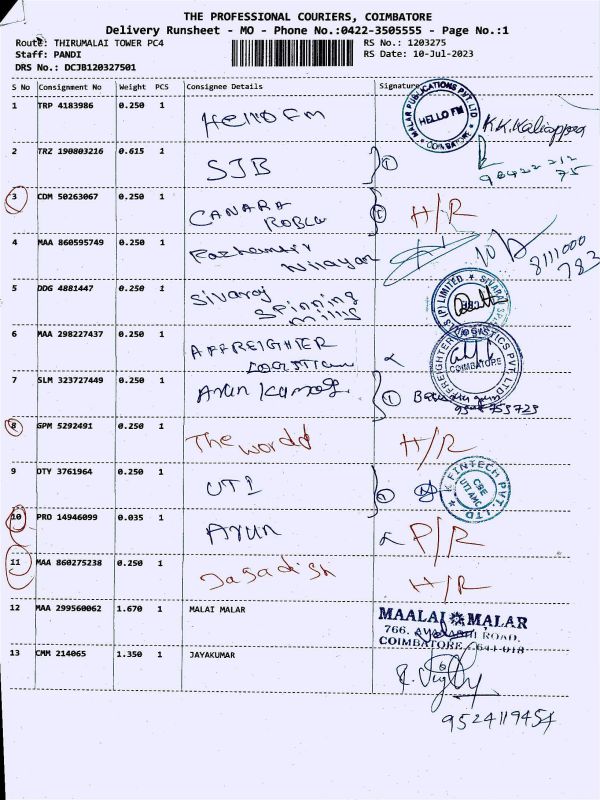 THE PROFESSIONAL COURIERS, COIMBATORE
Delivery Runsheet - MO - Phone No.:0422-3505555 - Page No.:1
Route: THIRUMALAI TOWER PC4 RS No.: 1203275
Staff: PANDI RS Date: 10-Jul-2023
DRS No.: DCJB120327501
S No Consignment No Weight PCS Consignee Details Signature
1 TRP 4183986 0.250 1 Hello FM MALAR PUBLICATIONS PVT LTD HELLO FM COIMBATORE
2 TRZ 190803216 0.615 1 SIB 1
3 CDM 50263067 0.250 1 CANARA 1 H/R
4 MAA 860595749 0.250 1 8111000
783
5 DDG 4881447 0.250 1 Sivaraj
Spinning
Mills
6 MAA 298227437 0.250 1 AFFREIGHTER COIMBATORE
7 SLM 323727449 0.250 1 Arun 1
8 GPM 5292491 0.250 1 The H/R
9 DTY 3761964 0.250 1 UTI 1 K FINTECH PVT. LTD CSE UTI AMC
10 PRO 14946099 0.035 1 Arun P/R
11 MAA 860275238 0.250 1 Jagadish H/R
12 MAA 299560062 1.670 1 MALAI MALAR MAALAI MALAR
766, ROAD,
COIMBATORE - 641 018
13 CMM 214065 1.350 1 JAYAKUMAR
9524119454